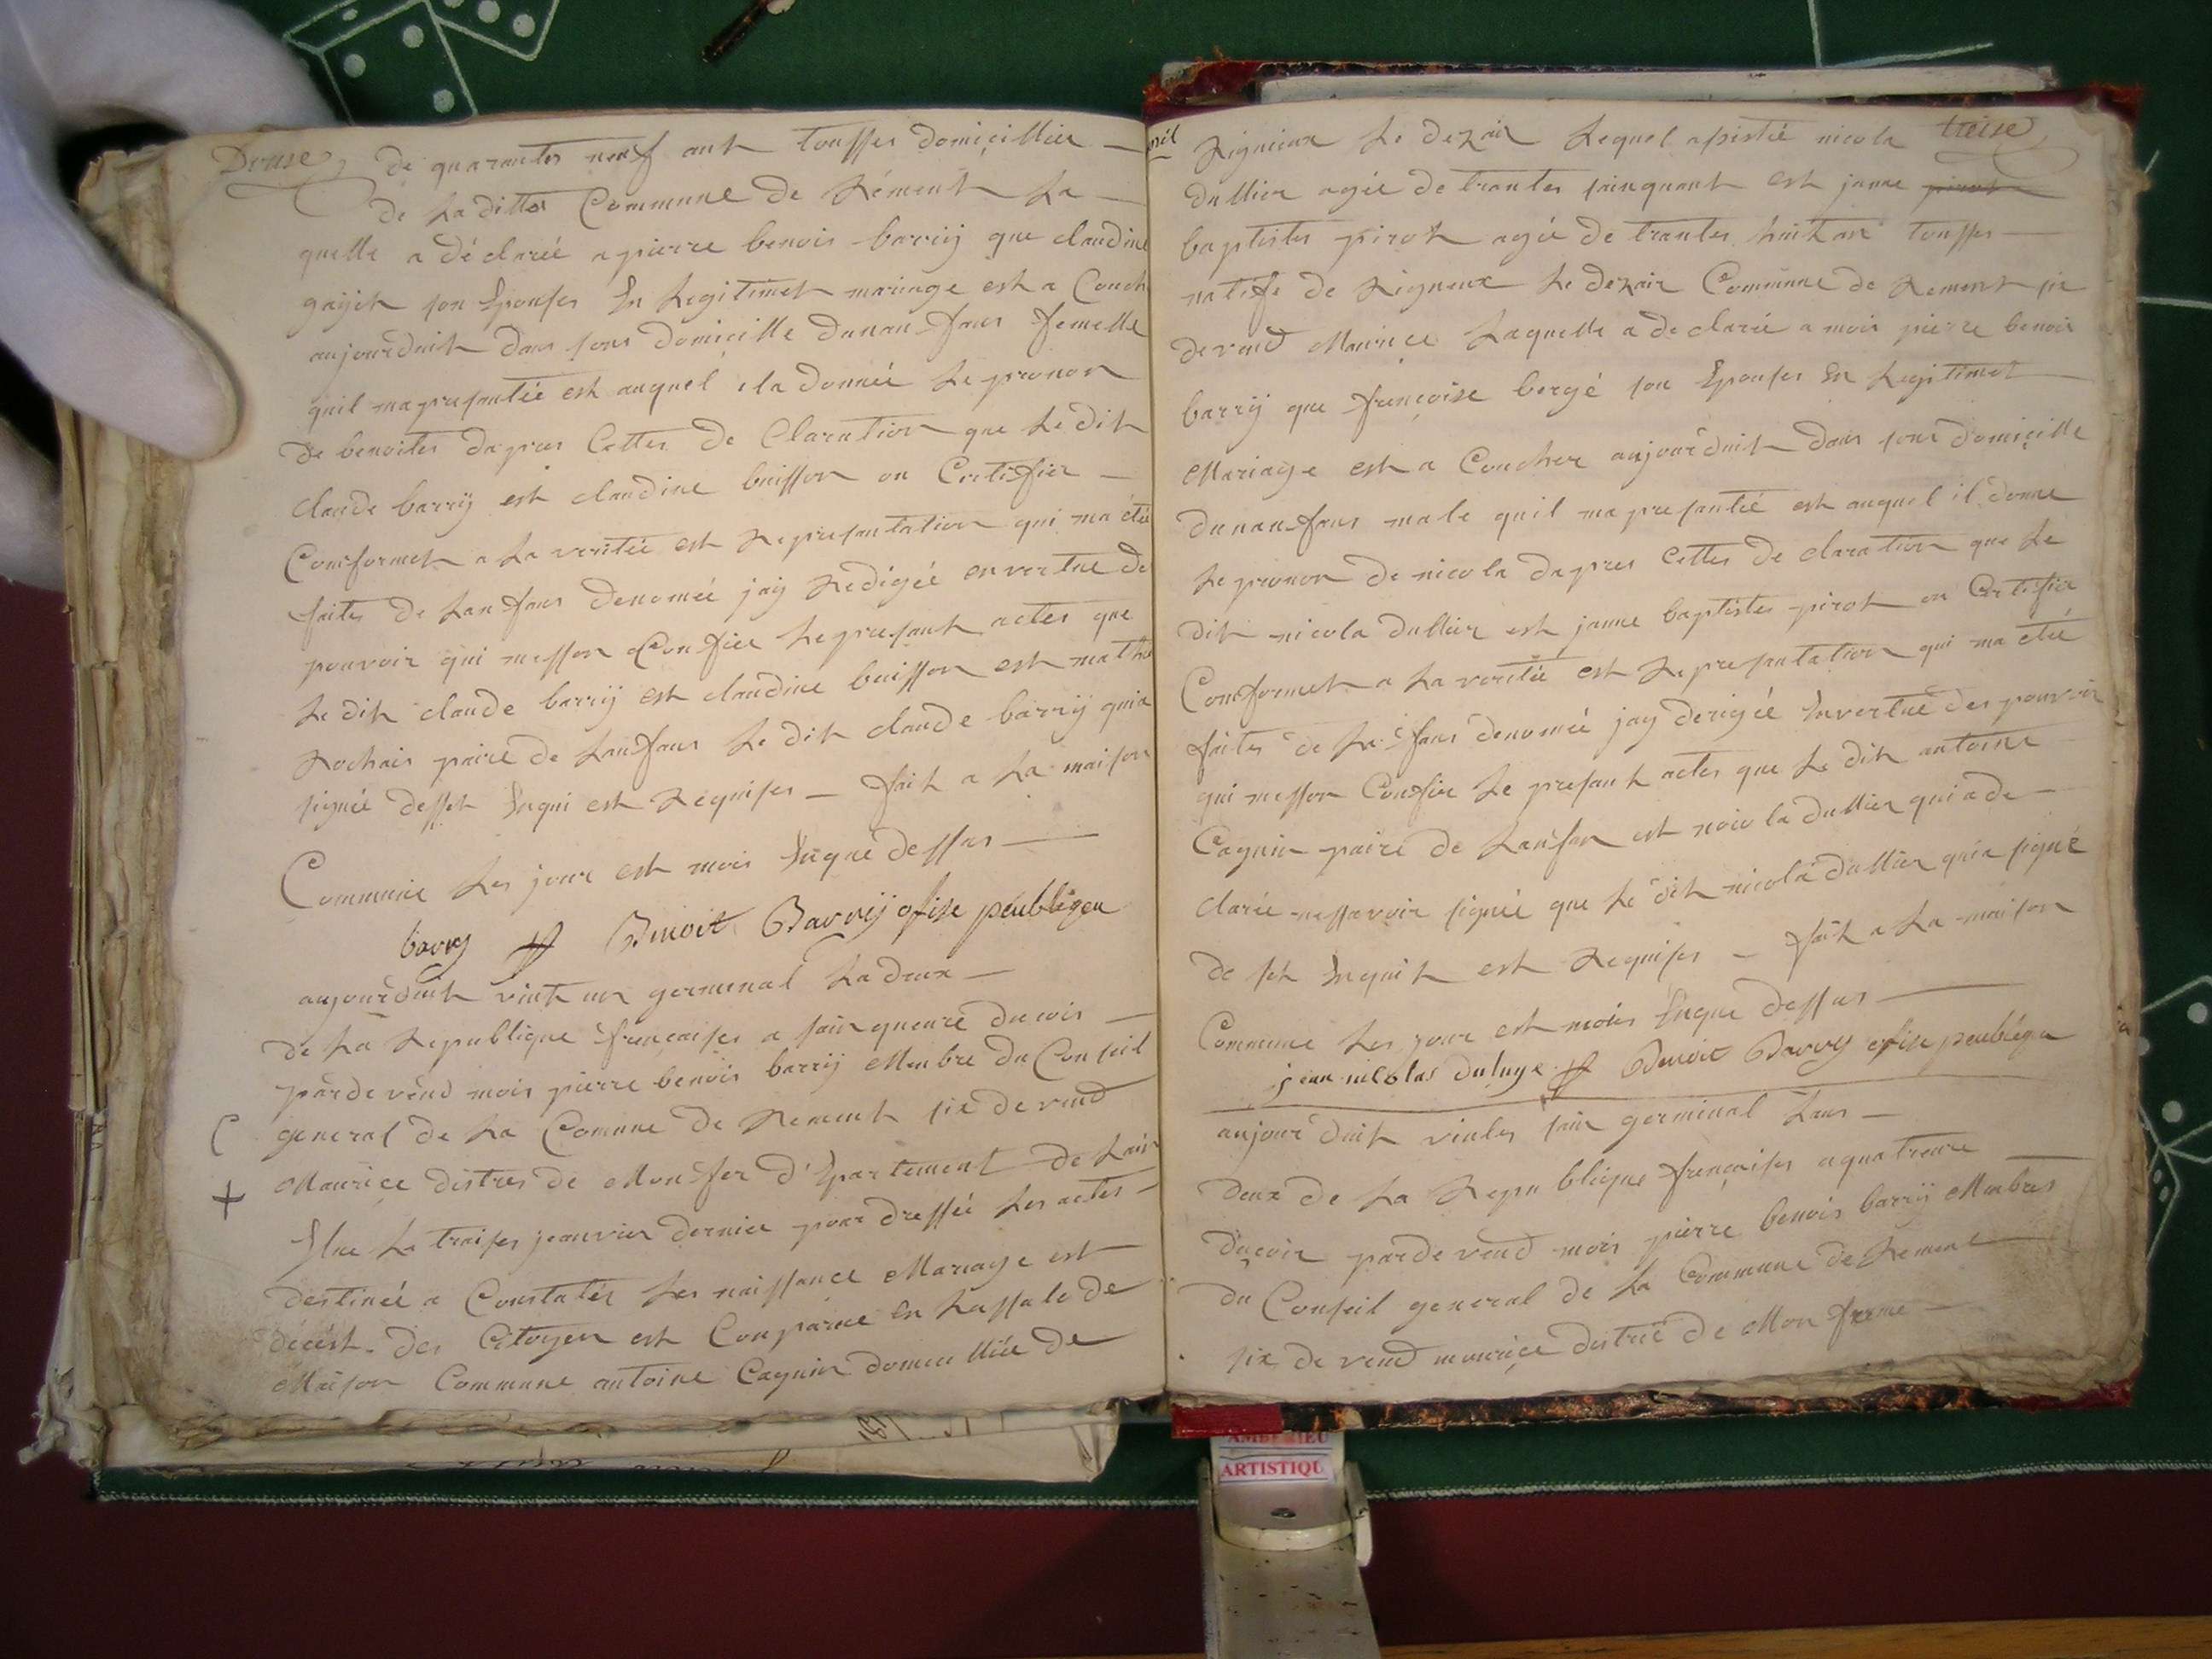 Douse de quarantes neuf ant tousses domicillier
de La ditte Commune de Rément La
quelle a déclarée a pierre benois barrij que claudine
gayet son Epouses En Legitimet mariage est a Couch
aujourduit dans sons domicille dunan fans femelle
quil ma presantée est auquel ila donnée Le pronon
de benoites dapres Cettes de Claration que Le dit
claude barrij est claudine buisson on Certifier
Conformet a La veritée est Representation qui ma étée
faites de Lan fans denomée jaij Redigée en vertue de
pouvoir qui messon Confier Le presant actes que
Le dit claude barrij est claudine buisson est mathi
Rochais paire de Lanfans Le dit claude barrij quia
signée desset Enqui est Requises fait a La maison
Commune Les jour est mois Enque dessus
barrij Benoit Barrij ofise peubligeu
aujourduit vint un germinal Ladeux
de La Republique francaises a sainqueure ducois
pardevend mois pierre benois barrij Membre du Conseil
general de La Comune de Rement six de vend
Maurice distres de Monfer d'Epartement de Lain
Elue Le traises jeanvier dernier pour dressée Les actes
destinée a Constatér Les naissance Mariage est
décést des Citoyen est Comparue En Lassale de
Maison Commune antoine Cagnin domicillié de
Rignieux Le dezair Lequel asistié nicola treise
dullier agée de trantes sainquant est janne pirot
baptistes pirot agée de trantes huit an tousses
natife de Rigneux Le dezair Commune de Rement si
devend Maurice Laquelle a de clarée a mois pierre benois
barrij que françoise bergé son Epouses En Legitimet
Mariage est a Coucher aujourduit dans sons domicille
dunan fans male quil ma presantée est auquel il donne
Le pronon de nicola dapres Cettes de claration que Le
dit nicola dullier est janne baptistes pirot on Certifier
Conformet a La veritée est Representation qui ma étée
faites de La fans denomée jay derigée Envertue des pouvoir
qui messon Confier Le presant actes que Le dit antoine
Cagnin paire de Lanfan est nicola dullier qui a de
clarée nessavoir signée que Le dit nicola dullier quia signé
de set Enquit est Requises fait a La maison
Commune Les jour est mois Enque dessus
jean nicolas duluye Benoit Barry ofise peubligeu
aujourduit vintes sain germinal Lans
deux de La Republique françaises aquatreure
duçoir pardevend mois pierre benois barrij Membres
du Conseil general de La Commune de Rement
six de vend maurice distrée de Mon ferme
AMBERIEU
ARTISTIQU